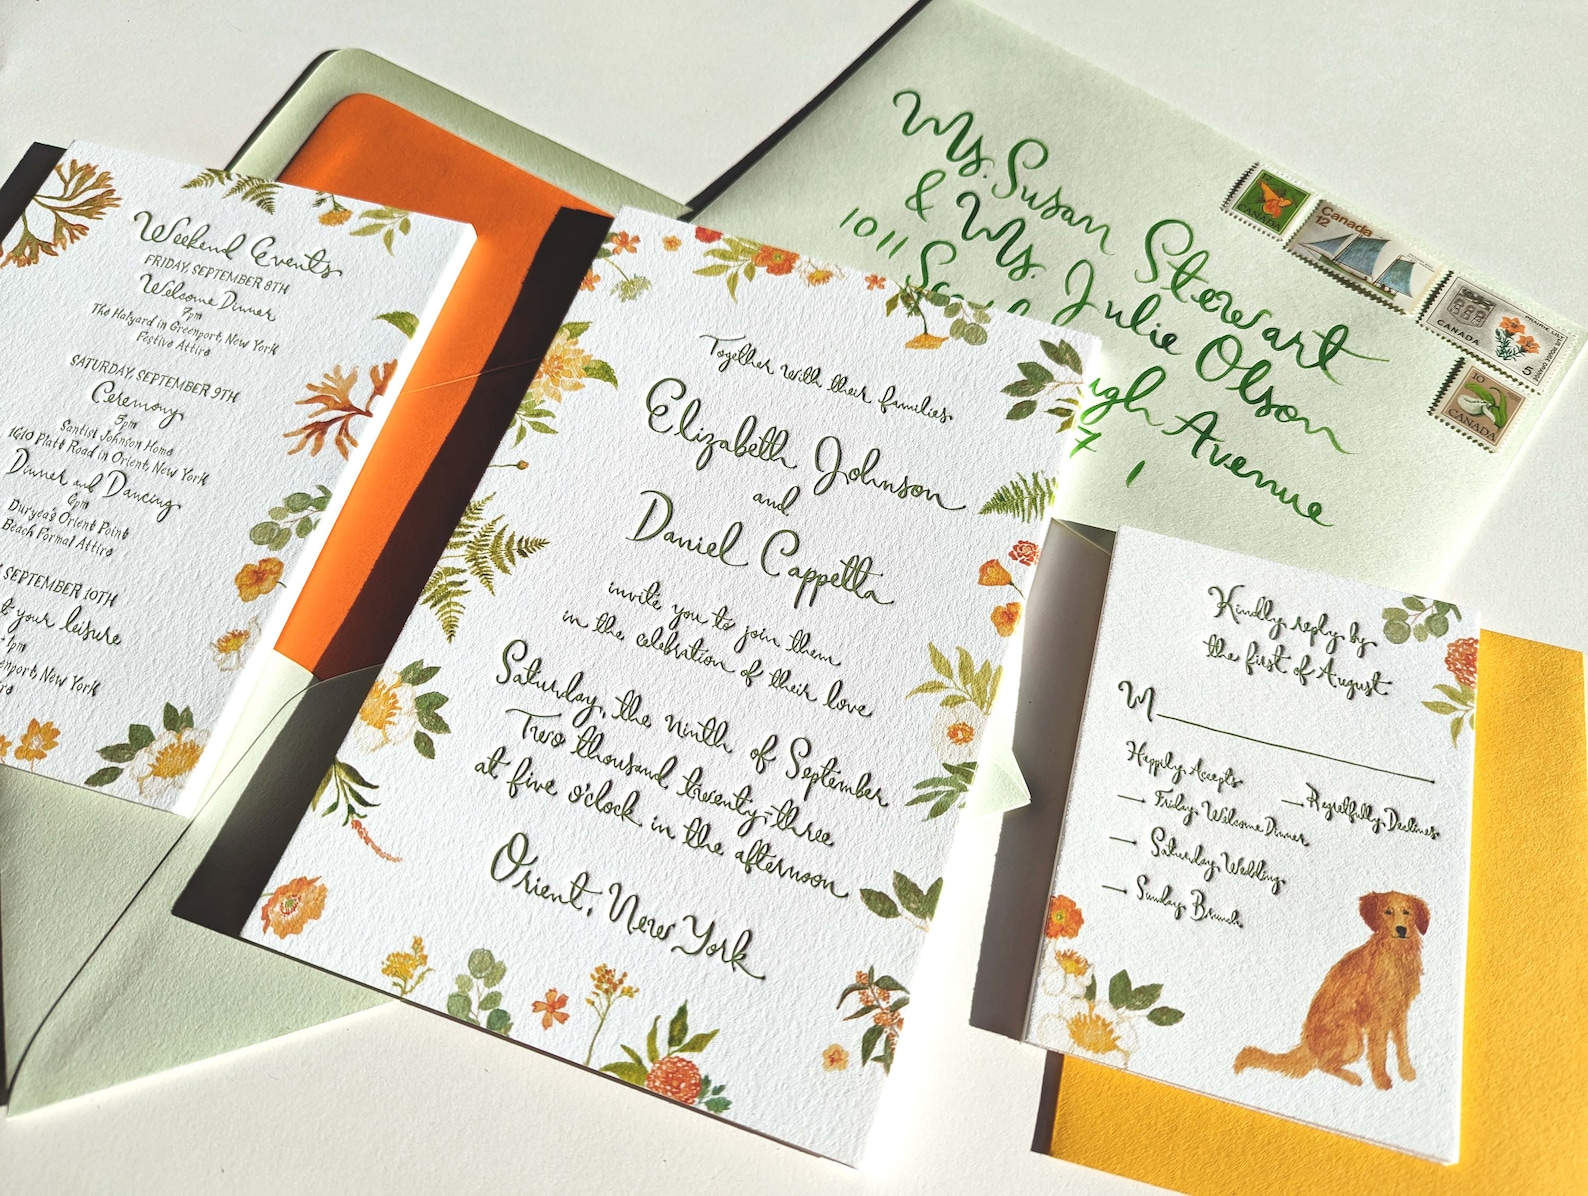 Weekend Events
FRIDAY, SEPTEMBER 8TH
Welcome Dinner
7pm
The Halyard in Greenport, New York
Festive Attire
SATURDAY, SEPTEMBER 9TH
Ceremony
5pm
Santist Johnson Home
1610 Platt Road in Orient, New York
Dinner and Dancing
6pm
Duryea's Orient Point
Beach Formal Attire
SEPTEMBER 10TH
your leisure
1pm
New York
Together with their families
Elizabeth Johnson
and
Daniel Cappetta
invite you to join them
in the celebration of their love
Saturday, the ninth of September
Two thousand twenty-three
at five o'clock in the afternoon
Orient, New York
Ms. Susan Stewart
& Ms. Julie Olson
1011
Avenue
7 1
CANADA
Canada
12
CANADA
PRAIRIE LILY
5
10
CANADA
Kindly reply by
the first of August
M
Happily Accepts
Regretfully Declines
Friday Welcome Dinner
Saturday Wedding
Sunday Brunch